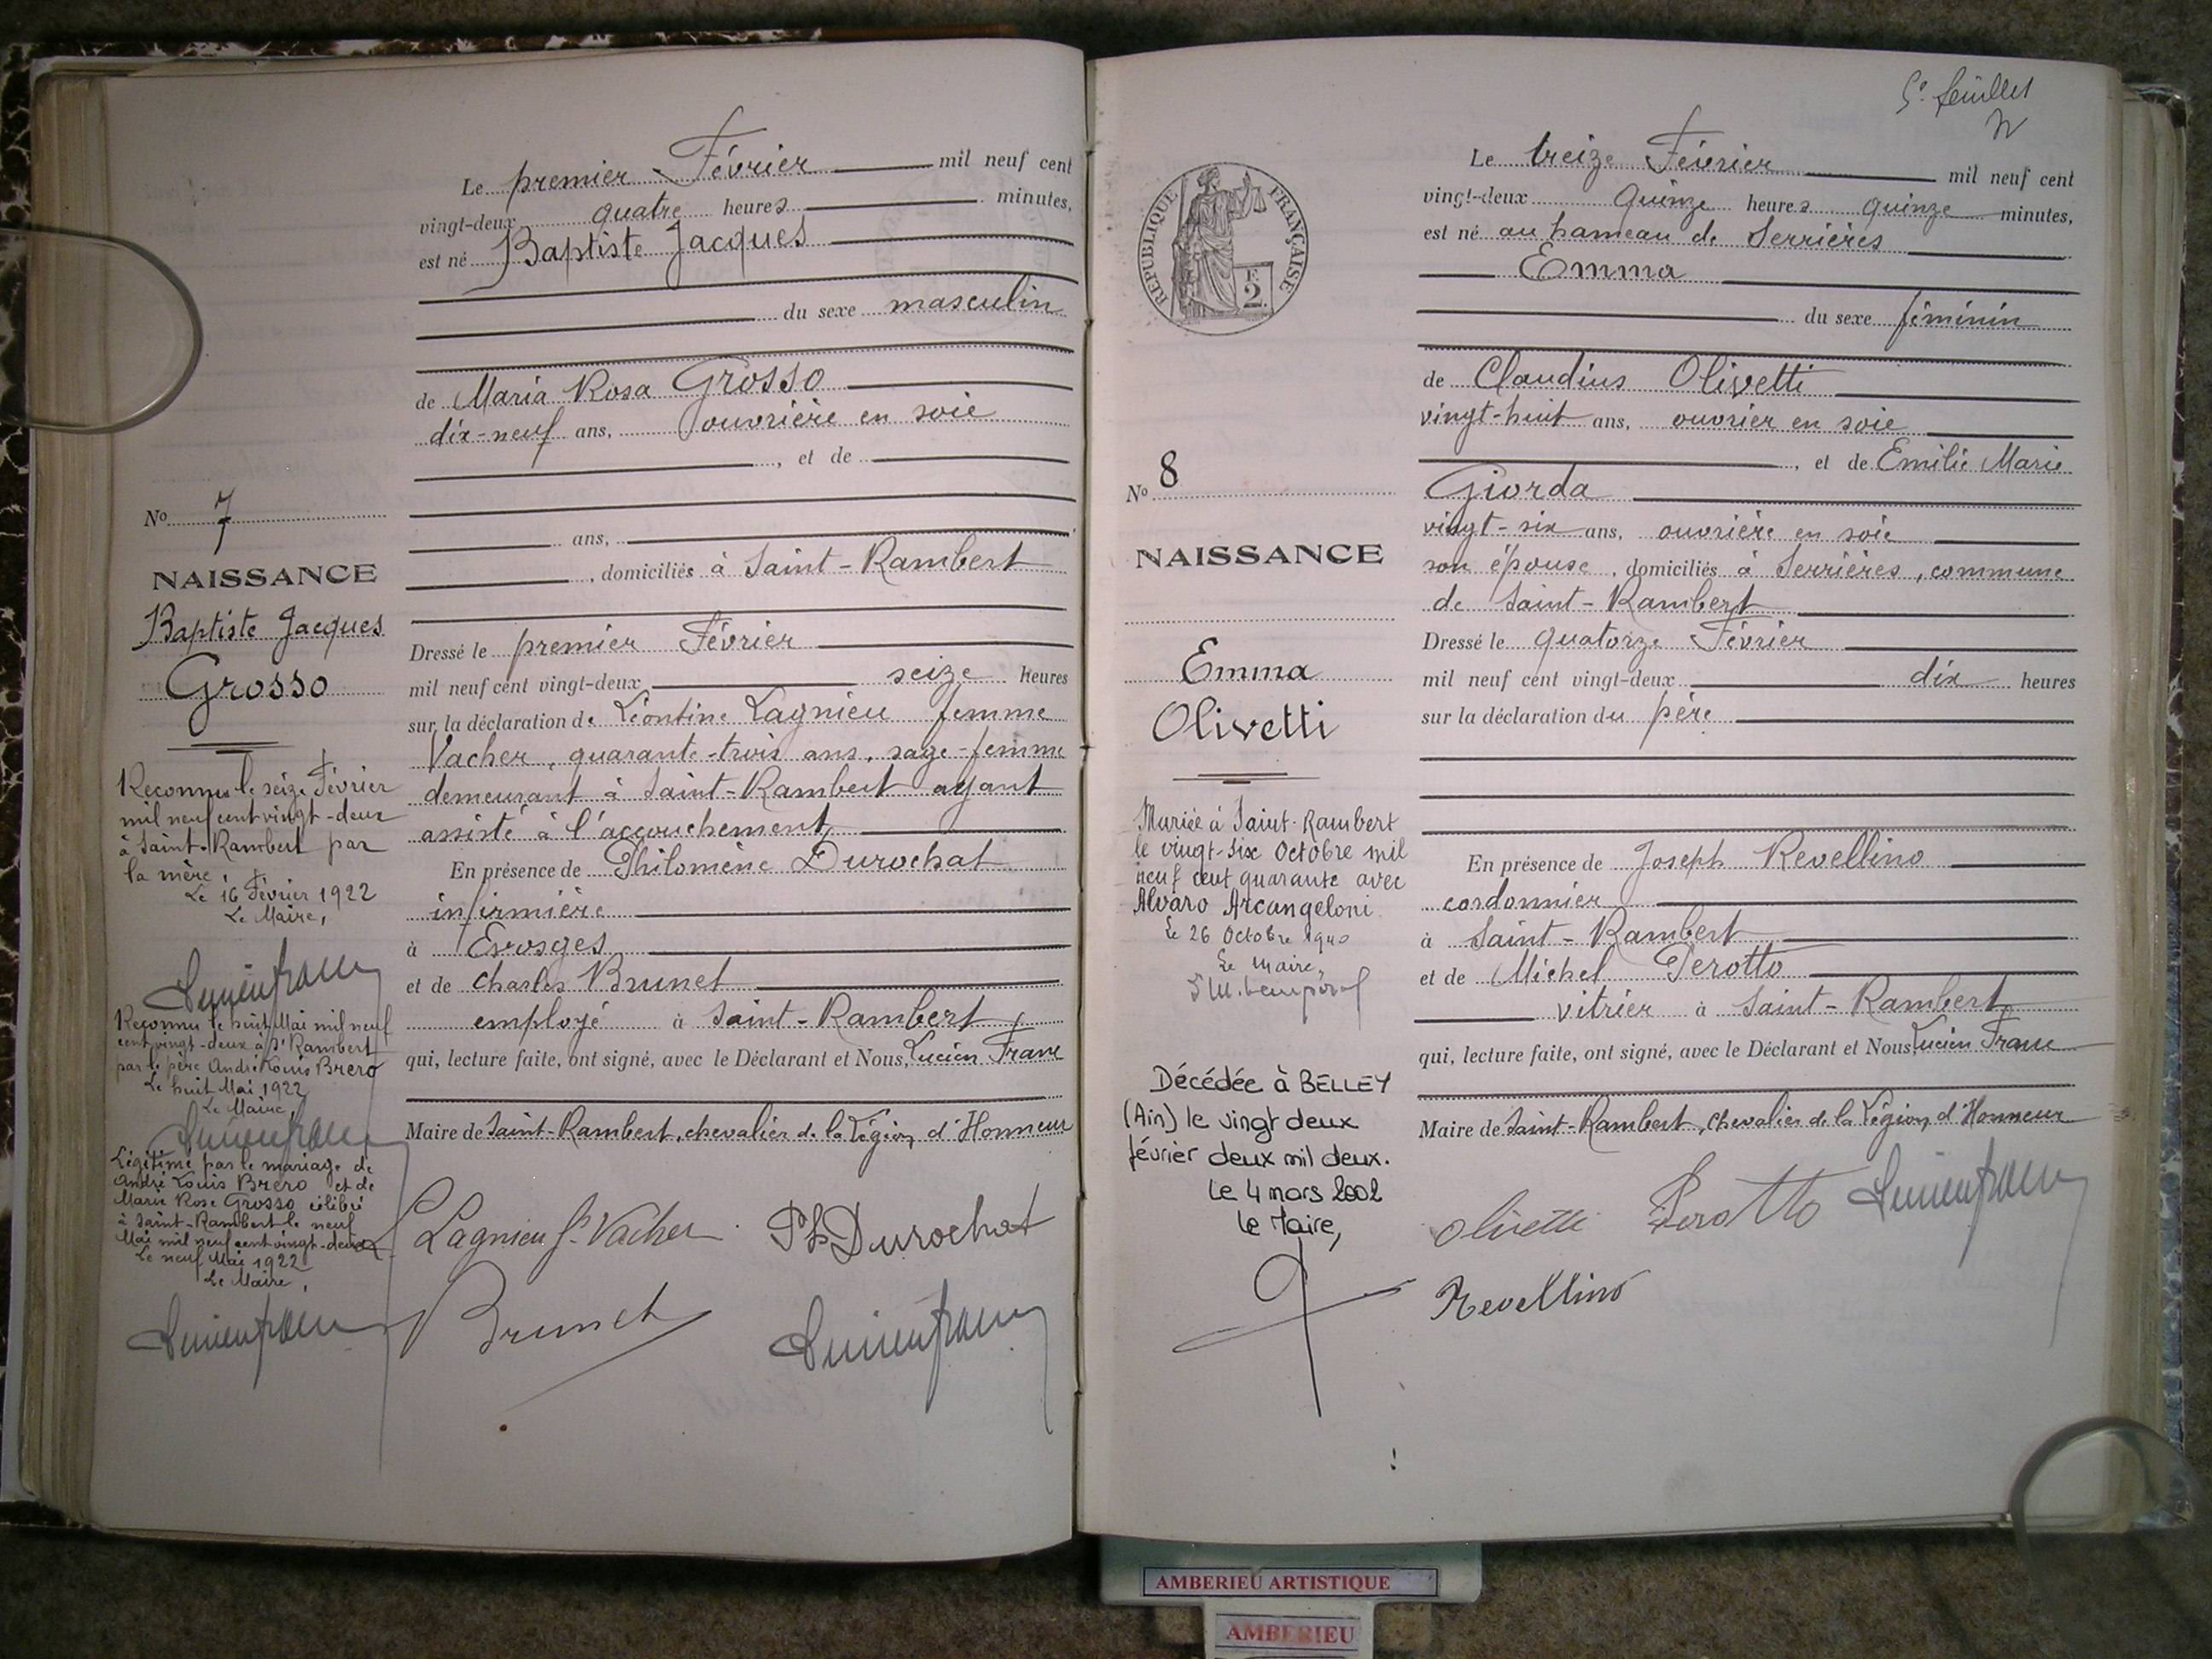 Le premier Février mil neuf cent
vingt-deux quatre heures minutes,
est né Baptiste Jacques
du sexe masculin
de Maria Rosa Grosso
dix-neuf ans, ouvrière en soie
, et de
ans,
, domiciliés à Saint-Rambert
Dressé le premier Février
mil neuf cent vingt-deux seize heures
sur la déclaration de Léontine Lagnieu femme
Vacher, quarante-trois ans, sage-femme
demeurant à Saint-Rambert ayant
assisté à l'accouchement
En présence de Philomène Durochat
infirmière
à Evosges
et de Charles Brunet
employé à Saint-Rambert,
qui, lecture faite, ont signé, avec le Déclarant et Nous, Lucien Franc
Maire de Saint-Rambert, chevalier de la Légion d'Honneur
L Lagnieu f. Vacher Ph Durochat
Brunet Lucien franc
No 7
NAISSANCE
Baptiste Jacques
Grosso
Reconnu le seize Février
mil neuf cent vingt-deux
à Saint-Rambert par
la mère.
Le 16 Février 1922
Le Maire,
Lucien franc
Reconnu le huit Mai mil neuf
cent vingt-deux à St Rambert
par le père André Louis Brero
Le huit Mai 1922
Le Maire,
Lucien franc
Légitimé par le mariage de
André Louis Brero et de
Marie Rose Grosso célébré
à Saint-Rambert le neuf
Mai mil neuf cent vingt-deux
Le neuf Mai 1922
Le Maire,
Lucien franc
5e feuillet
RÉPUBLIQUE FRANÇAISE
F.
2
Le treize Février mil neuf cent
vingt-deux quinze heures quinze minutes,
est né au hameau de Serrières
Emma
du sexe féminin
de Claudius Olivetti
vingt-huit ans, ouvrier en soie
, et de Emilie Marie
Giorda
vingt-six ans, ouvrière en soie
son épouse, domiciliés à Serrières, commune
de Saint-Rambert
Dressé le quatorze Février
mil neuf cent vingt-deux dix heures
sur la déclaration du père
En présence de Joseph Revellino
cordonnier
à Saint-Rambert
et de Michel Perotto
vitrier à Saint-Rambert,
qui, lecture faite, ont signé, avec le Déclarant et Nous Lucien Franc
Maire de Saint-Rambert, chevalier de la Légion d'Honneur
Olivetti Perotto Lucien franc
Revellino
No 8
NAISSANCE
Emma
Olivetti
Mariée à Saint-Rambert
le vingt-six Octobre mil
neuf cent quarante avec
Alvaro Arcangeloni.
Le 26 Octobre 1940
Le Maire,
Décédée à BELLEY
(Ain) le vingt deux
février deux mil deux.
Le 4 mars 2002
Le Maire,
AMBERIEU ARTISTIQUE
AMBERIEU